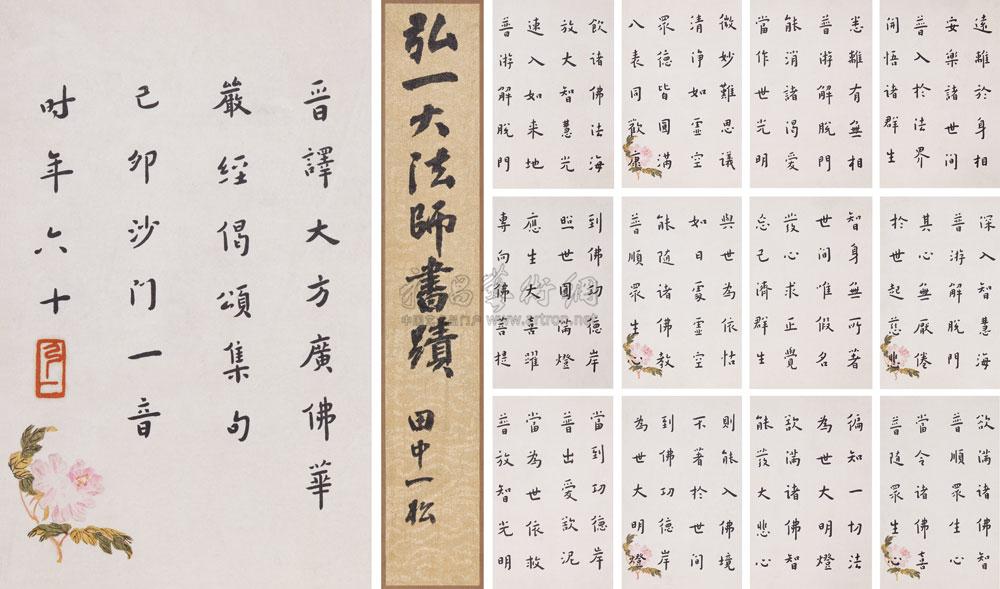 晉譯大方廣佛華
嚴經偈頌集句
己卯沙门一音
时年六十
弘一大法師書蹟
田中一松
飲諸佛法海
放大智慧光
速入如来地
普游解脫門
微妙難思議
清淨如虛空
眾德皆圓滿
八表同歡
悉離有無相
普游解脫門
能消諸渴愛
當作世光明
遠離於身相
安樂諸世间
普入於法界
開悟諸群生
到佛功德岸
照世圓滿燈
應生大喜躍
專向佛菩提
與世為依怙
如日處虛空
能隨諸佛教
普順眾生心
智身無所著
世间唯假名
發心求正覺
忘己濟群生
深入智慧海
普游解脫門
其心無厭倦
於世起慈悲
當到功德岸
普出愛欲泥
當為世依救
普放智光明
則能入佛境
不著於世间
到佛功德岸
為世大明燈
徧知一切法
為世大明燈
欲滿諸佛智
能發大悲心
欲滿諸佛智
普順眾生心
當令諸佛喜
普隨眾生心
雅昌藝術網
中国艺术品门户 www.artron.net